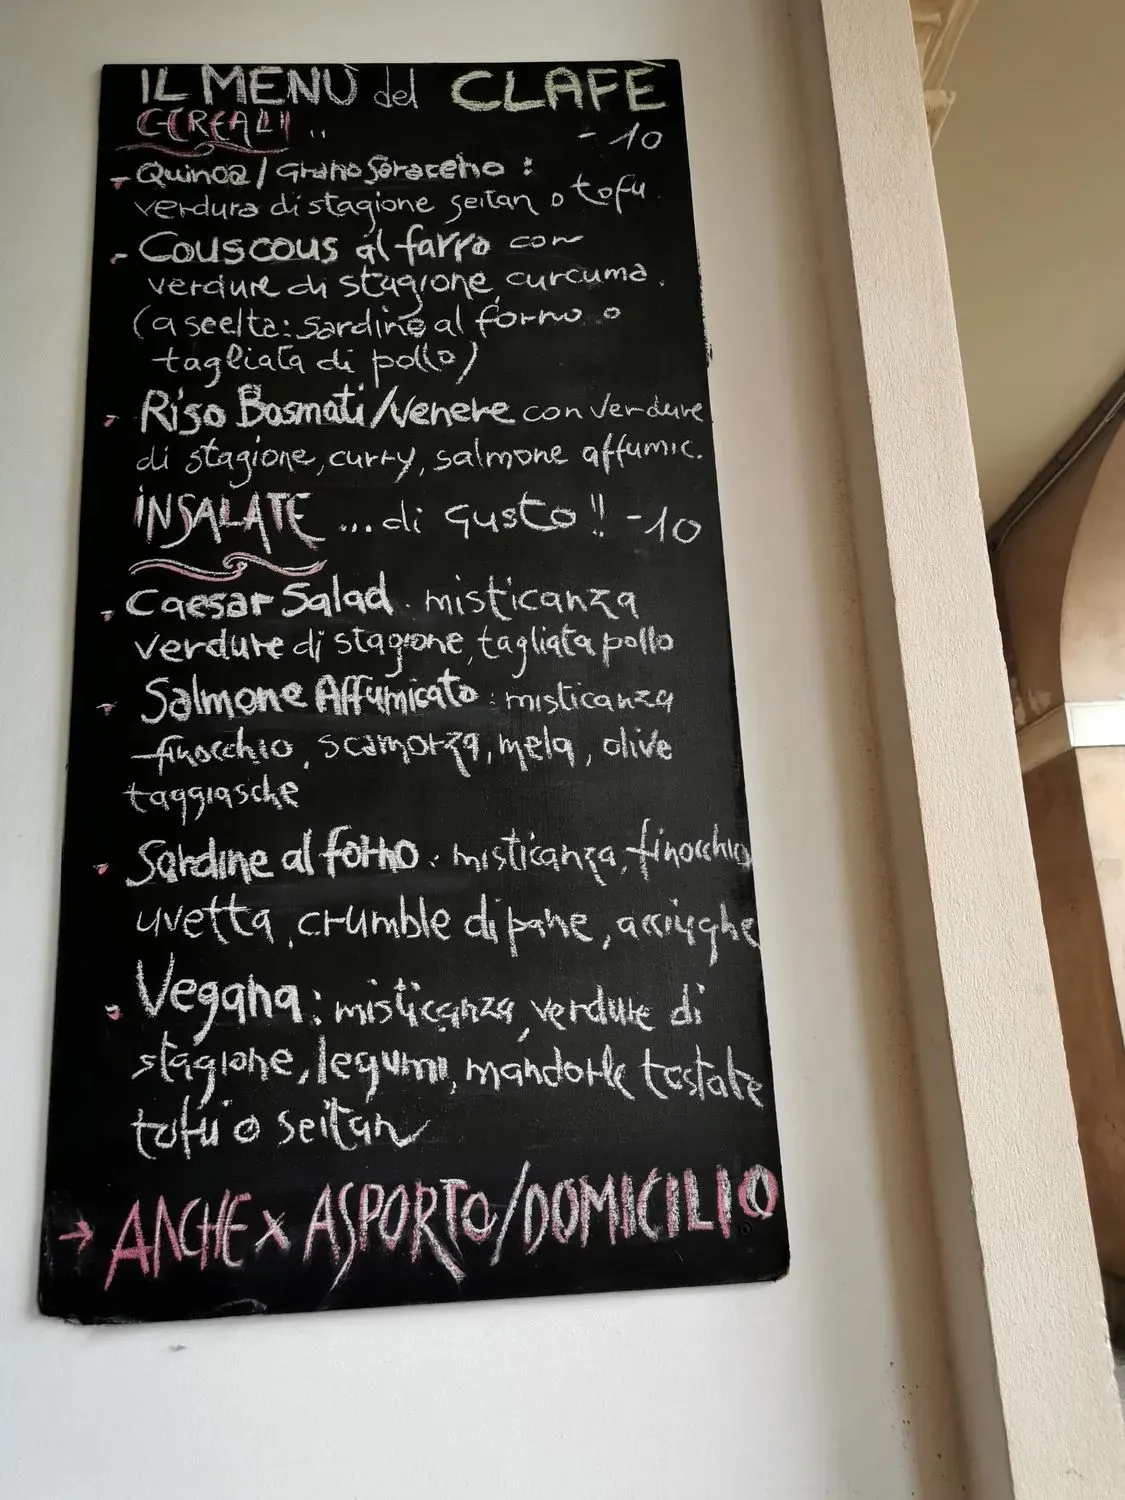 IL MENÙ del CLAFÈ
CEREALI .. -10
- Quinoa / Grano Saraceno :
verdura di stagione seitan o tofu
- Couscous al farro con
verdure di stagione, curcuma.
(a scelta: sardine al forno o
tagliata di pollo)
- Riso Basmati/Venere con verdure
di stagione, curry, salmone affumic.
INSALATE ... di gusto !! -10
- Caesar Salad . misticanza
verdure di stagione, tagliata pollo
- Salmone Affumicato : misticanza
finocchio, scamorza, mela, olive
taggiasche
- Sardine al forno . misticanza, finocchio
uvetta, crumble di pane, acciughe
- Vegana : misticanza, verdure di
stagione, legumi, mandorle tostate
tofu o seitan
→ ANCHE x ASPORTO/DOMICILIO